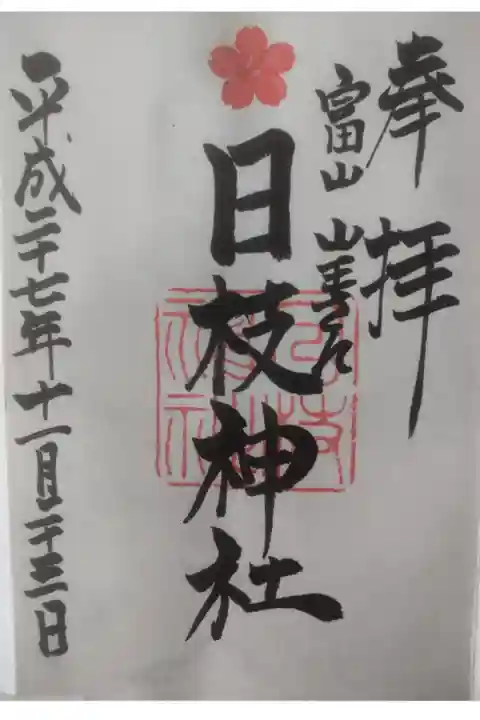 奉拝
富山
日枝神社
日枝神社
平成二十七年十一月二十三日